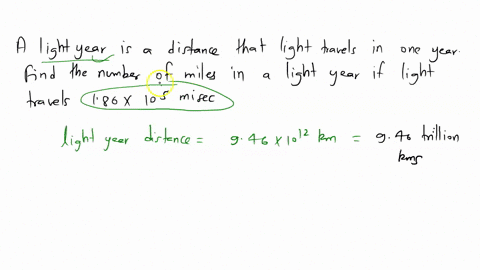 A light year is a distance that light travels in one year.
Find the number of miles in a light year if light
travels 1.86 × 10⁵ mi sec
light year distance = 9.46 × 10¹² km = 9.46 trillion
kms